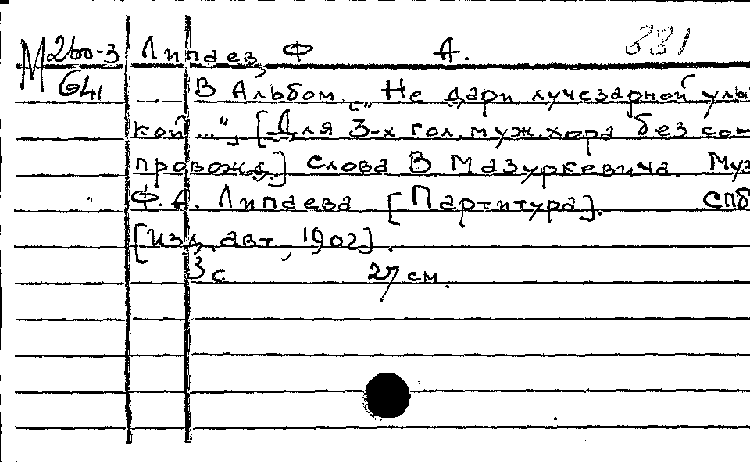 М 200-3 Липаев, Ф. А. 881
641
В Альбом. „Не дари лучезарной улыб
кой ...", [Для 3-х гол. муж. хора без со
провожд.] Слова В Мазуркевича. Муз
Ф. А. Липаева [Партитура]. СПб
[изд. авт., 1902].
3 с 27 см.